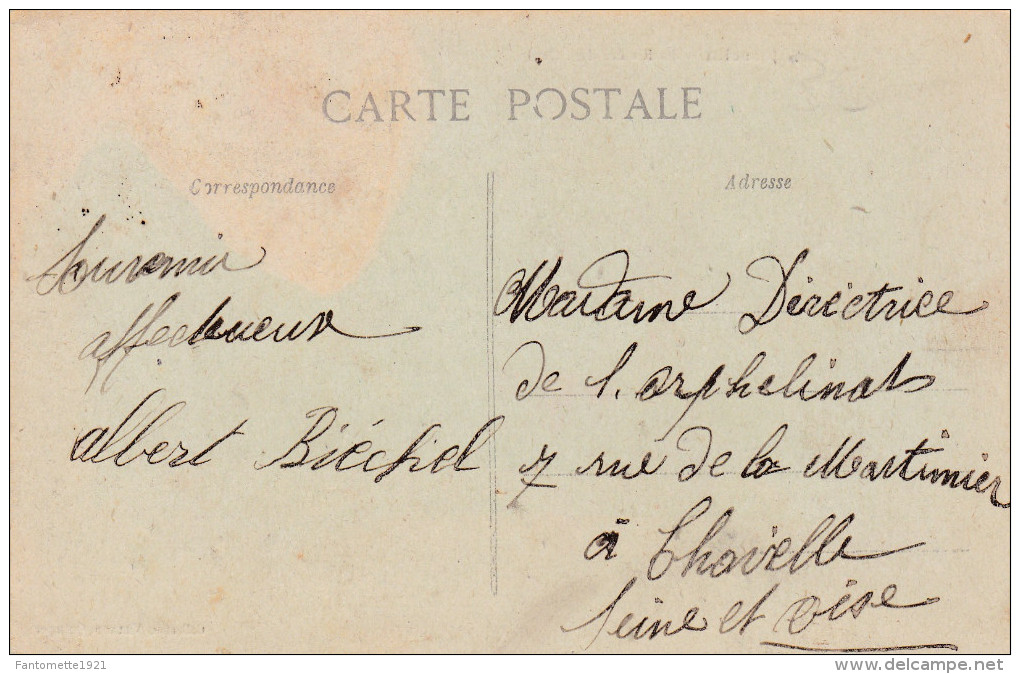 CARTE POSTALE
Correspondance
Adresse
Souvenir
affectueux
albert Biéchel
Madame Diréctrice
de l'orphelinat
7 rue de la Martinier
à Chavelle
Seine et oise
Fantometta1921
www.delcampe.net